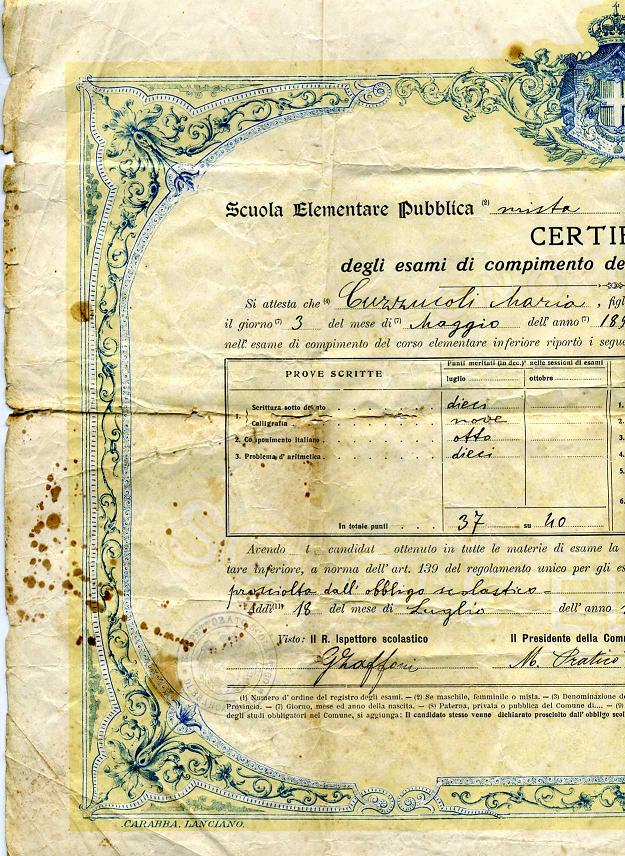 Scuola Elementare Pubblica (2) mista
CERTIF
degli esami di compimento de
Si attesta che (6) Cuzzucoli Maria, figl
il giorno (7) 3 del mese di (7) Maggio dell' anno (7) 189
nell' esame di compimento del corso elementare inferiore riportò i segue
PROVE SCRITTE
Punti meritati (in dec.) nelle sessioni di esami
luglio ottobre
1. Scrittura sotto dettato dieci 1.
Calligrafia nove 2.
2. Componimento italiano otto 3.
3. Problema d' aritmetica dieci 4.
5.
6.
In totale punti 37 su 40
Avendo l candidat ottenuto in tutte le materie di esame la
tare inferiore, a norma dell' art. 139 del regolamento unico per gli es
prosciolta dall' obbligo scolastico
Addì (11) 18 del mese di Luglio dell' anno
Visto: Il R. Ispettore scolastico Il Presidente della Comm
M. Pratico
(1) Numero d' ordine del registro degli esami. — (2) Se maschile, femminile o mista. — (3) Denominazione de
Provincia. — (7) Giorno, mese ed anno della nascita. — (8) Paterna, privata o pubblica del Comune di.... — (9)
degli studi obbligatori nel Comune, si aggiunga: Il candidato stesso venne dichiarato prosciolto dall' obbligo scol
CARABBA, LANCIANO.